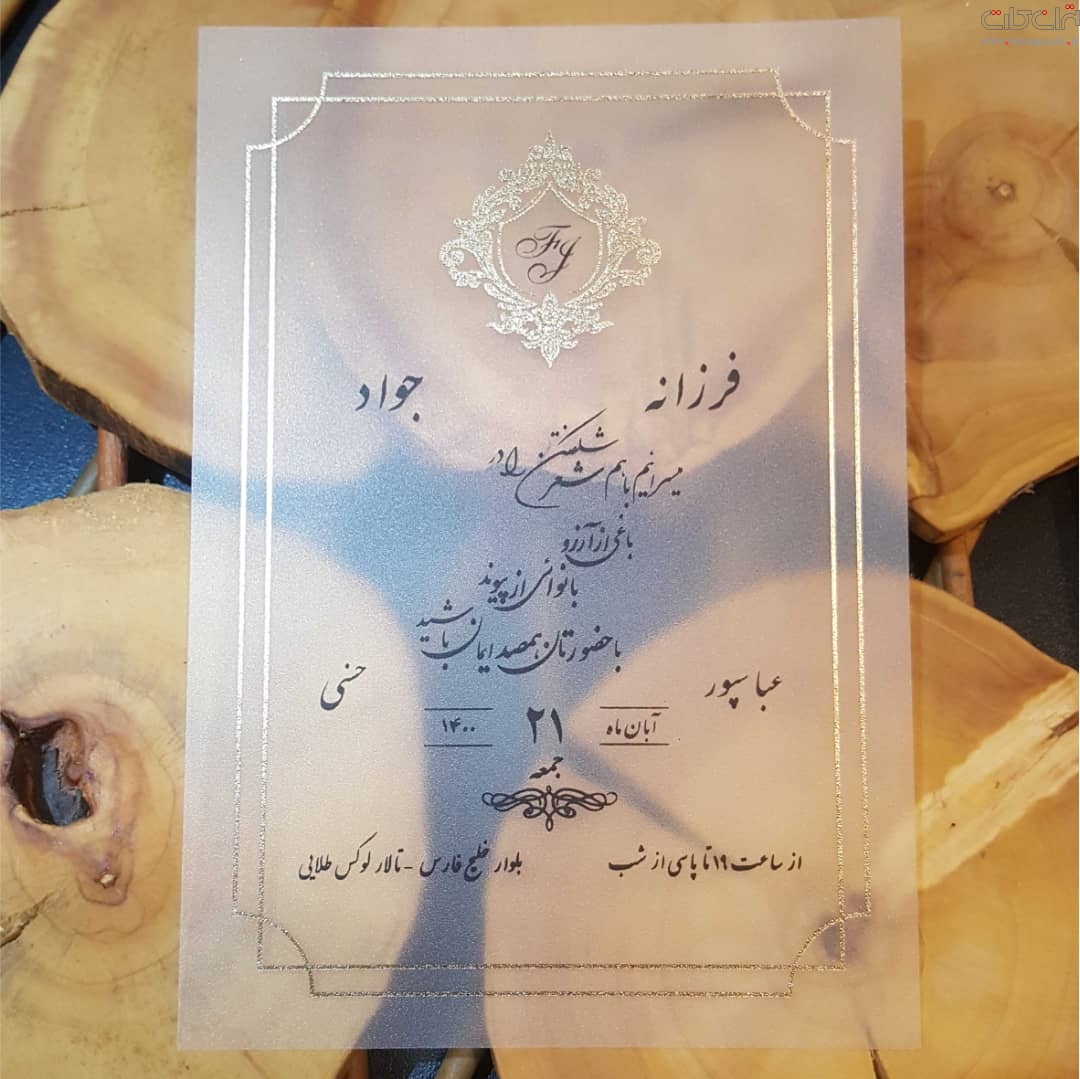 FJ
فرزانه جواد
میسرائیم با هم شعر شکفتن را در
باغی از آرزو
با نوائی از پیوند
با حضورتان همصد ایمان باشید
عباسپور حسنی
آبان ماه ۲۱ ۱۴۰۰
جمعه
از ساعت ۱۹ تا پاسی از شب بلوار خلیج فارس - تالار لوکس طلایی